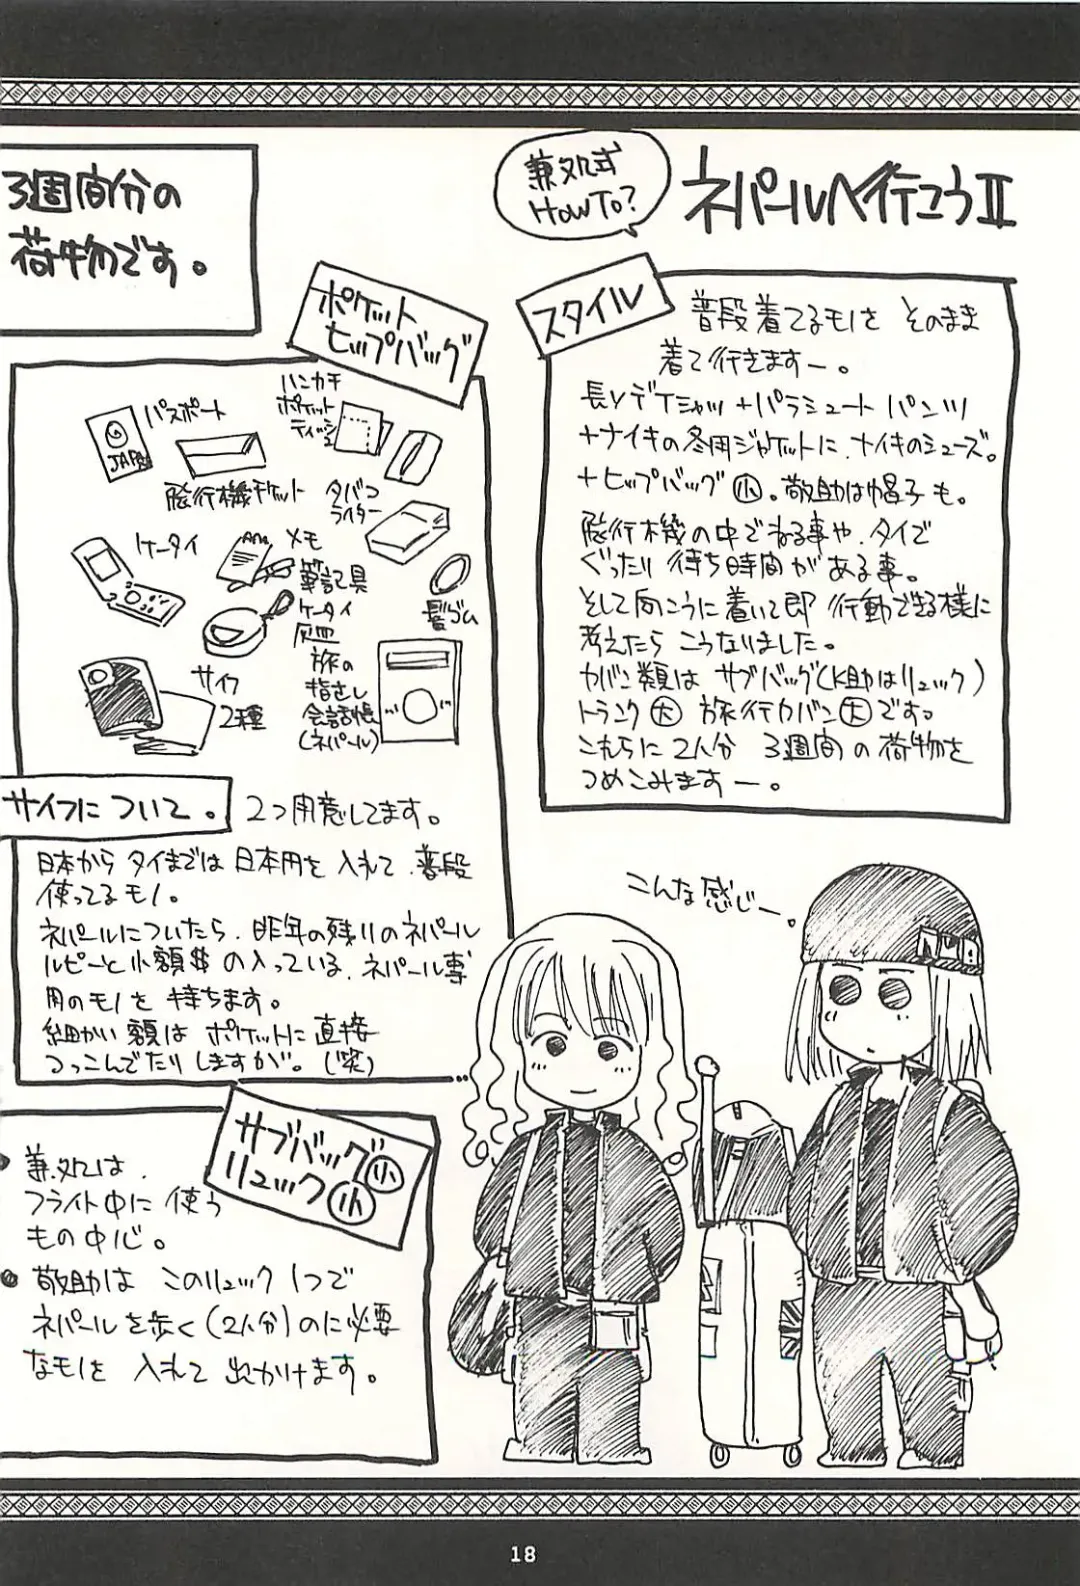 ネパールへ行こうⅡ
兼処式
HOW TO?
スタイル
普段着てるモノを そのまま
着て行きますー。
長Vデ Tシャツ+パラシュート パンツ
+ナイキの冬用ジャケットに、ナイキのシューズ。
+ヒップバッグ小。敬助は帽子も。
飛行機の中でねる事や、タイで
ぐったり 待ち時間がある事。
そして向こうに着いて即 行動できる様に
考えたら こうなりました。
カバン類は サブバッグ(K助はリュック)
トランク大 旅行カバン大です。
これらに 2人分 3週間の荷物を
つめこみますー。
こんな感じー。
3週間分の
荷物です。
ポケット
ヒップバッグ
パスポート
JAPA
飛行機チケット
ハンカチ
ポケット
ティッシュ
タバコ
ライター
ケータイ
メモ
筆記具
ケータイ
灰皿
髪ゴム
サイフ
2種
旅の
指さし
会話帳
(ネパール)
サイフに ついて。
2つ用意してます。
日本から タイまでは 日本円を 入れて、普段
使ってるモノ。
ネパールについたら、昨年の残りのネパール
ルピーと小額$の入っている、ネパール専
用のモノを 持ちます。
細かい額は ポケットに直接
つっこんでたりしますが。(笑)
サブバッグ小
リュック小
兼処は、
フライト中に 使う
もの中心。
敬助は このリュック1つで
ネパールを歩く(2人分)のに必要
なモノを 入れて 出かけます。
18